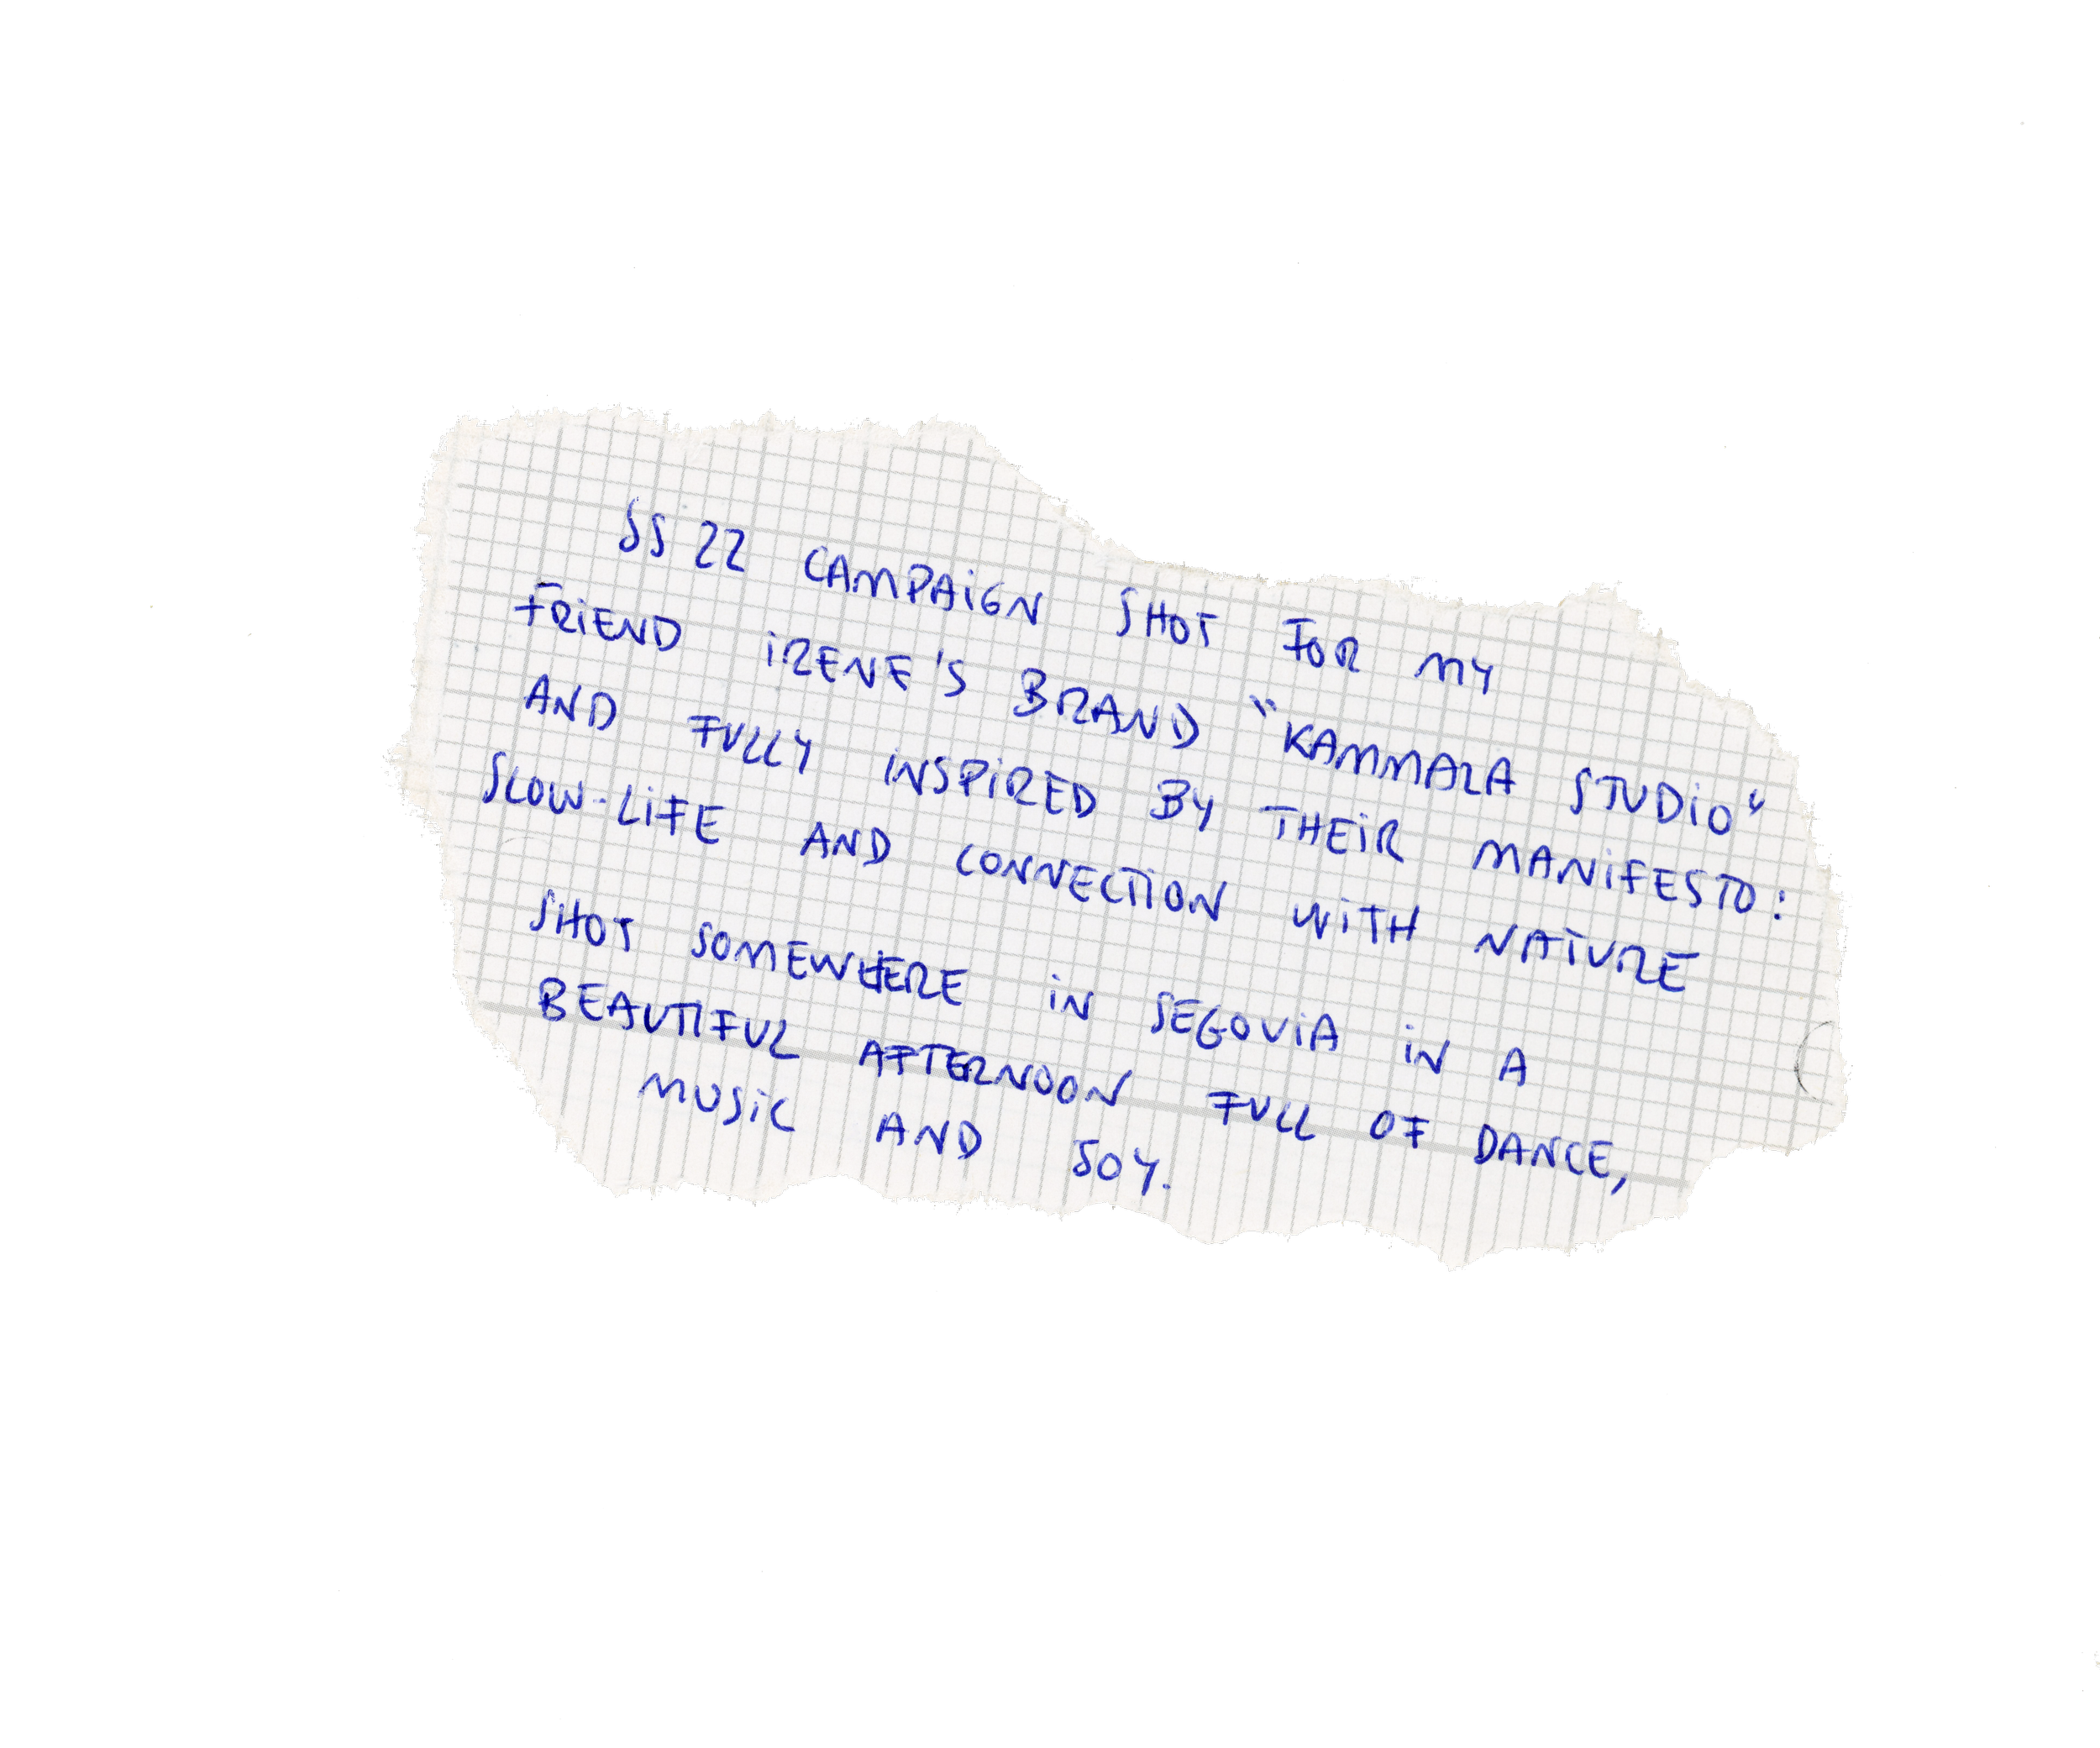 SS 22 CAMPAIGN SHOT FOR MY
FRIEND IRENE'S BRAND "KAMMARA STUDIO"
AND FULLY INSPIRED BY THEIR MANIFESTO:
SLOW-LIFE AND CONNECTION WITH NATURE
SHOT SOMEWHERE IN SEGOVIA IN A
BEAUTIFUL AFTERNOON FULL OF DANCE,
MUSIC AND JOY.